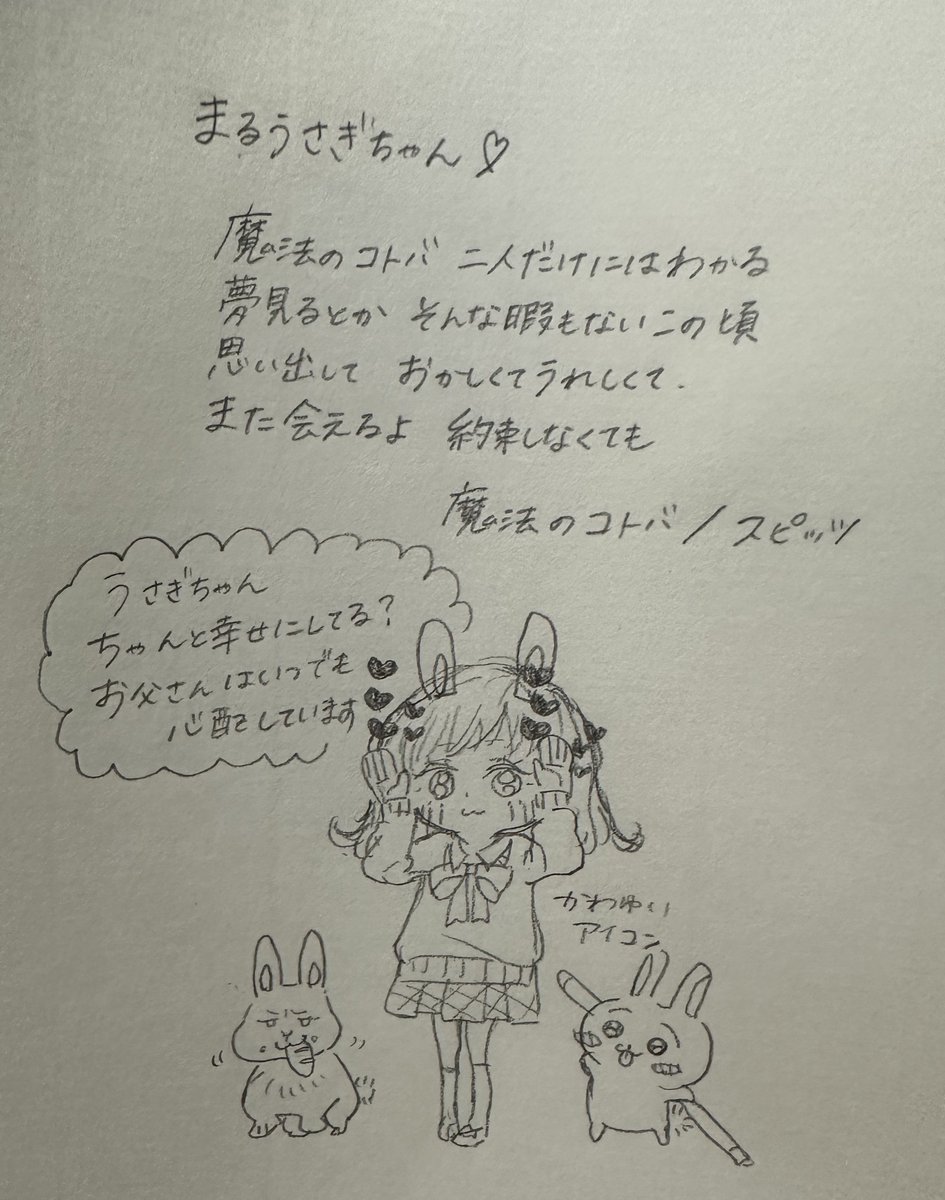 まるうさぎちゃん♡
魔法のコトバ 二人だけにはわかる
夢見るとか そんな暇もないこの頃
思い出して おかしくてうれしくて.
また会えるよ 約束しなくても
魔法のコトバ / スピッツ
うさぎちゃん
ちゃんと幸せにしてる?
お父さんはいつでも
心配しています
かわゆい
アイコン